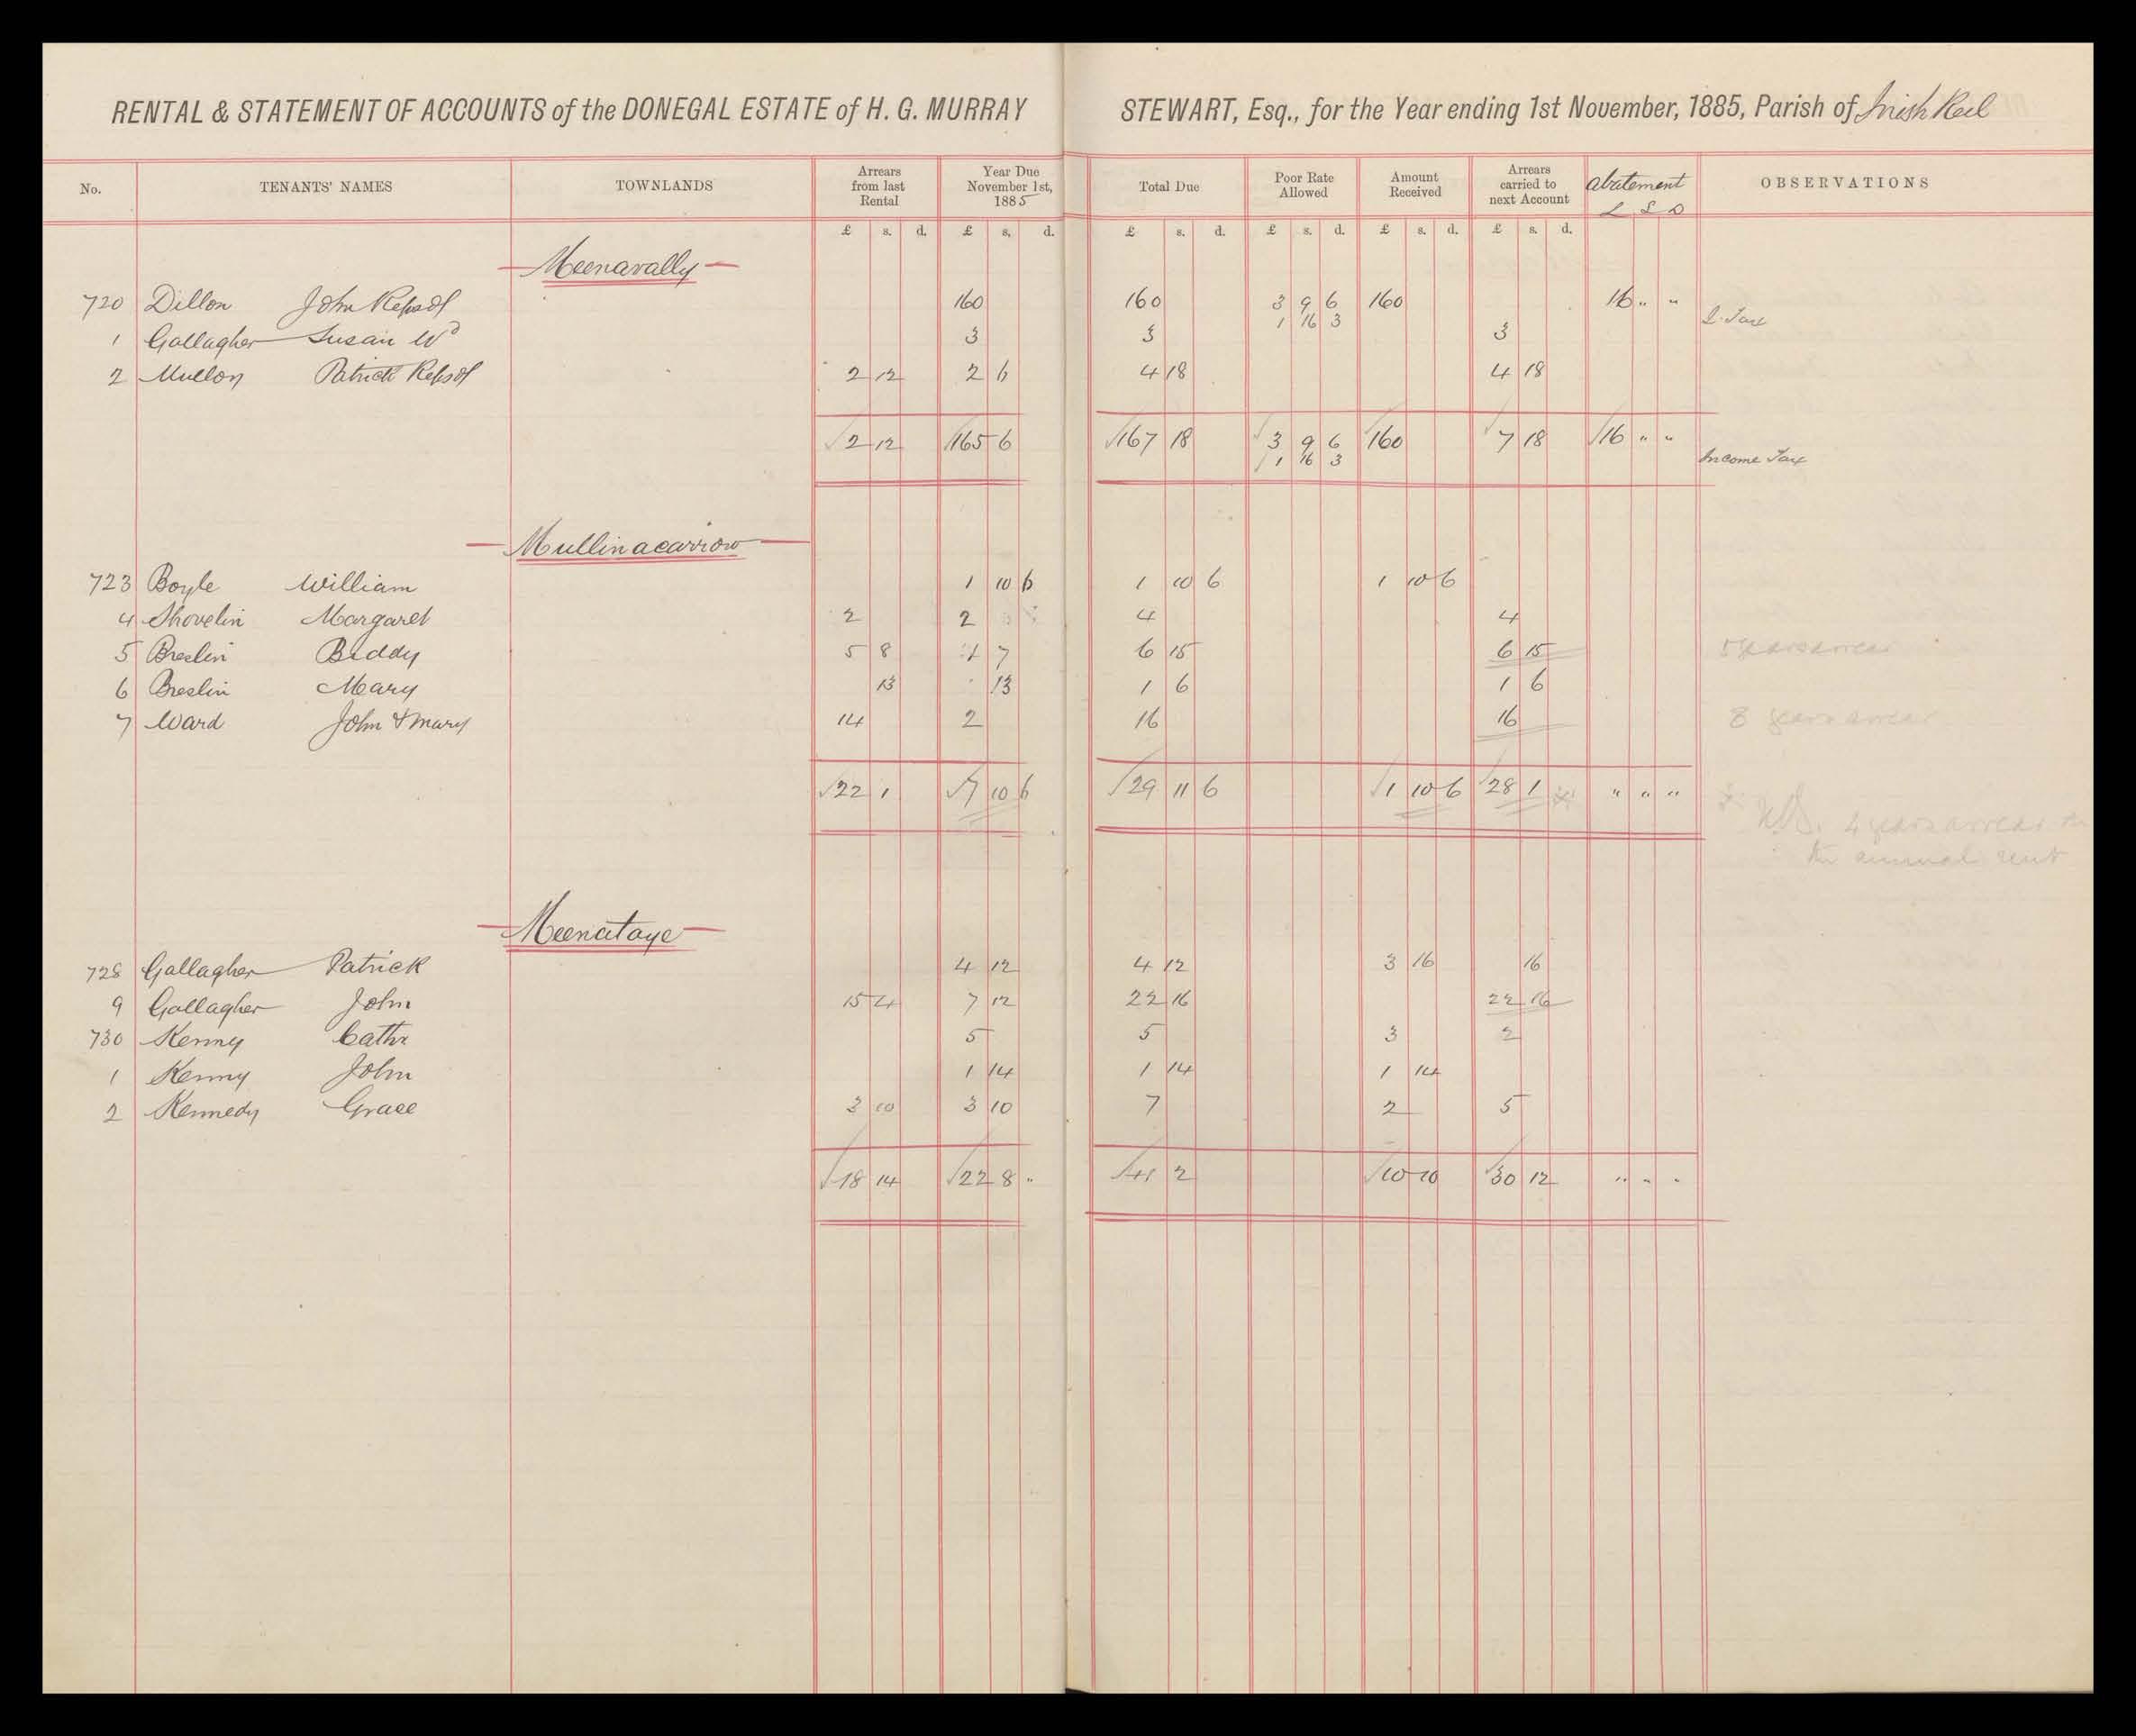 RENTAL & STATEMENT OF ACCOUNTS of the DONEGAL ESTATE of H. G. MURRAY STEWART, Esq., for the Year ending 1st November, 1885, Parish of Inish Keel
No. TENANTS' NAMES TOWNLANDS Arrears from last Rental Year Due November 1st, 1885 Total Due Poor Rate Allowed Amount Received Arrears carried to next Account Abatement £ S D OBSERVATIONS
£ s. d. £ s. d. £ s. d. £ s. d. £ s. d. £ s. d.
Meenavally
720 Dillon John Repsof 160 160 3 9 6 160 16 " "
1 16 3 I. Tax
1 Gallagher Susan Wd 3 3 3
2 Mullon Patrick Repsof 2 12 2 6 4 18 4 18
2 12 165 6 167 18 3 9 6 160 7 18 16 " "
1 16 3 Income Tax
Mullinacarrow
723 Boyle William 1 10 6 1 10 6 1 10 6
4 Shovelin Margaret 2 2 4 4
5 Breslin Biddy 5 8 1 7 6 15 6 15 5 years arrear
6 Breslin Mary 13 13 1 6 1 6
7 Ward John & Mary 14 2 16 16 8 years arrear
22 1 7 10 6 29 11 6 1 10 6 28 1 " " "
N.B. 4 years arrear
the annual rent
Meenataye
728 Gallagher Patrick 4 12 4 12 3 16 16
9 Gallagher John 15 4 7 12 22 16 22 16
730 Kenny Cathr 5 5 3 2
1 Kenny John 1 14 1 14 1 14
2 Kennedy Grace 3 10 3 10 7 2 5
18 14 22 8 " 41 2 10 10 30 12 " " "